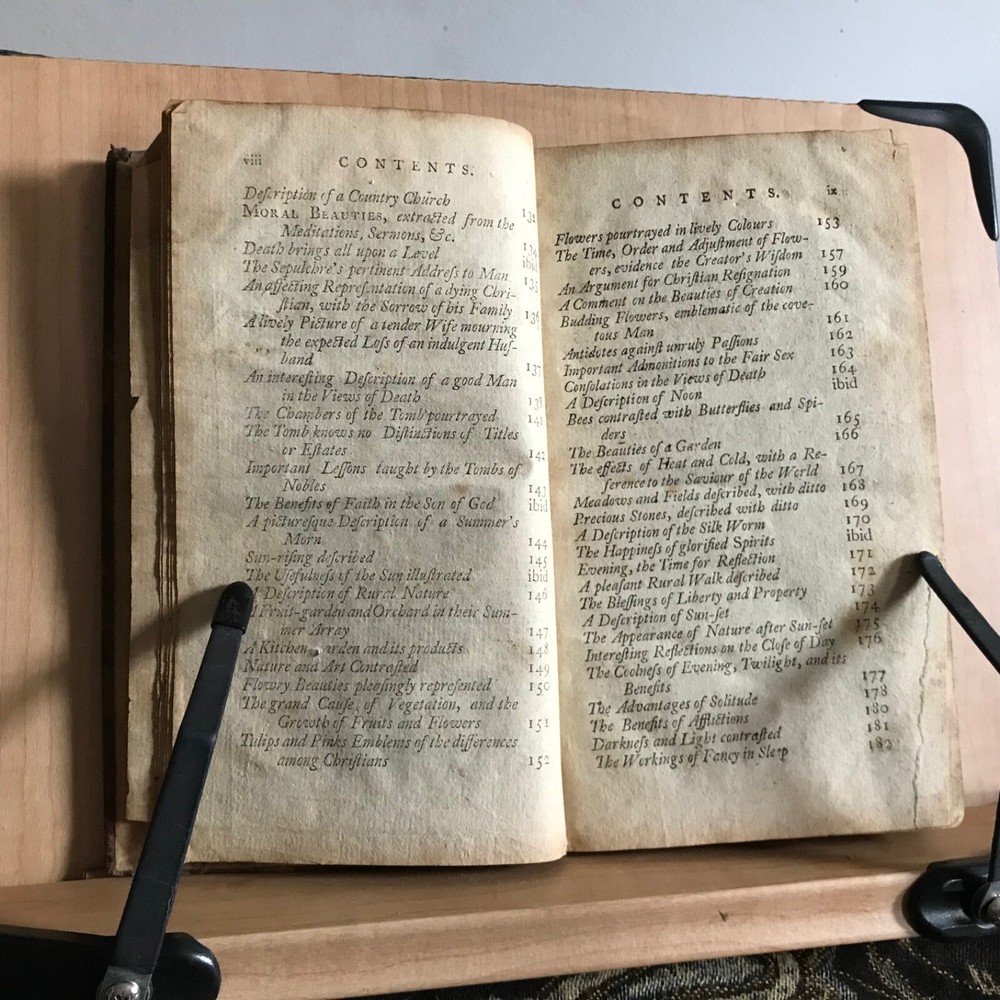 viii
CONTENTS.
Deſcription of a Country Church 132
MORAL BEAUTIES, extracted from the
Meditations, Sermons, &c. 134
Death brings all upon a Level ibid
The Sepulchre's pertinent Addreſs to Man 135
An affecting Repreſentation of a dying Chri-
ſtian, with the Sorrow of his Family 136
A lively Picture of a tender Wife mourning
the expected Loſs of an indulgent Huſ-
band 137
An intereſting Deſcription of a good Man
in the Views of Death 138
The Chambers of the Tomb pourtrayed 141
The Tomb knows no Diſtinctions of Titles
or Eſtates 142
Important Leſſons taught by the Tombs of
Nobles 143
The Benefits of Faith in the Son of God ibid
A pictureſque Deſcription of a Summer's
Morn 144
Sun-riſing deſcribed 145
The Uſefulneſs of the Sun illuſtrated ibid
A Deſcription of Rural Nature 146
A Fruit-garden and Orchard in their Sum-
mer Array 147
A Kitchen garden and its products 148
Nature and Art Contraſted 149
Flowry Beauties pleaſingly repreſented 150
The grand Cauſe of Vegetation, and the
Growth of Fruits and Flowers 151
Tulips and Pinks Emblems of the differences
among Chriſtians 152
CONTENTS. ix
Flowers pourtrayed in lively Colours 153
The Time, Order and Adjuſtment of Flow-
ers, evidence the Creator's Wiſdom 157
An Argument for Chriſtian Reſignation 159
A Comment on the Beauties of Creation 160
Budding Flowers, emblematic of the cove-
tous Man 161
Antidotes againſt unruly Paſſions 162
Important Admonitions to the Fair Sex 163
Conſolations in the Views of Death 164
A Deſcription of Noon ibid
Bees contraſted with Butterflies and Spi-
ders 165
The Beauties of a Garden 166
The effects of Heat and Cold, with a Re-
ference to the Saviour of the World 167
Meadows and Fields deſcribed, with ditto 168
Precious Stones, deſcribed with ditto 169
A Deſcription of the Silk Worm 170
The Happineſs of glorified Spirits ibid
Evening, the Time for Reflection 171
A pleaſant Rural Walk deſcribed 172
The Bleſſings of Liberty and Property 173
A Deſcription of Sun-ſet 174
The Appearance of Nature after Sun-ſet 175
Intereſting Reflections on the Cloſe of Day 176
The Coolneſs of Evening, Twilight, and its
Benefits 177
The Advantages of Solitude 178
The Benefits of Afflictions 180
Darkneſs and Light contraſted 181
The Workings of Fancy in Sleep 182